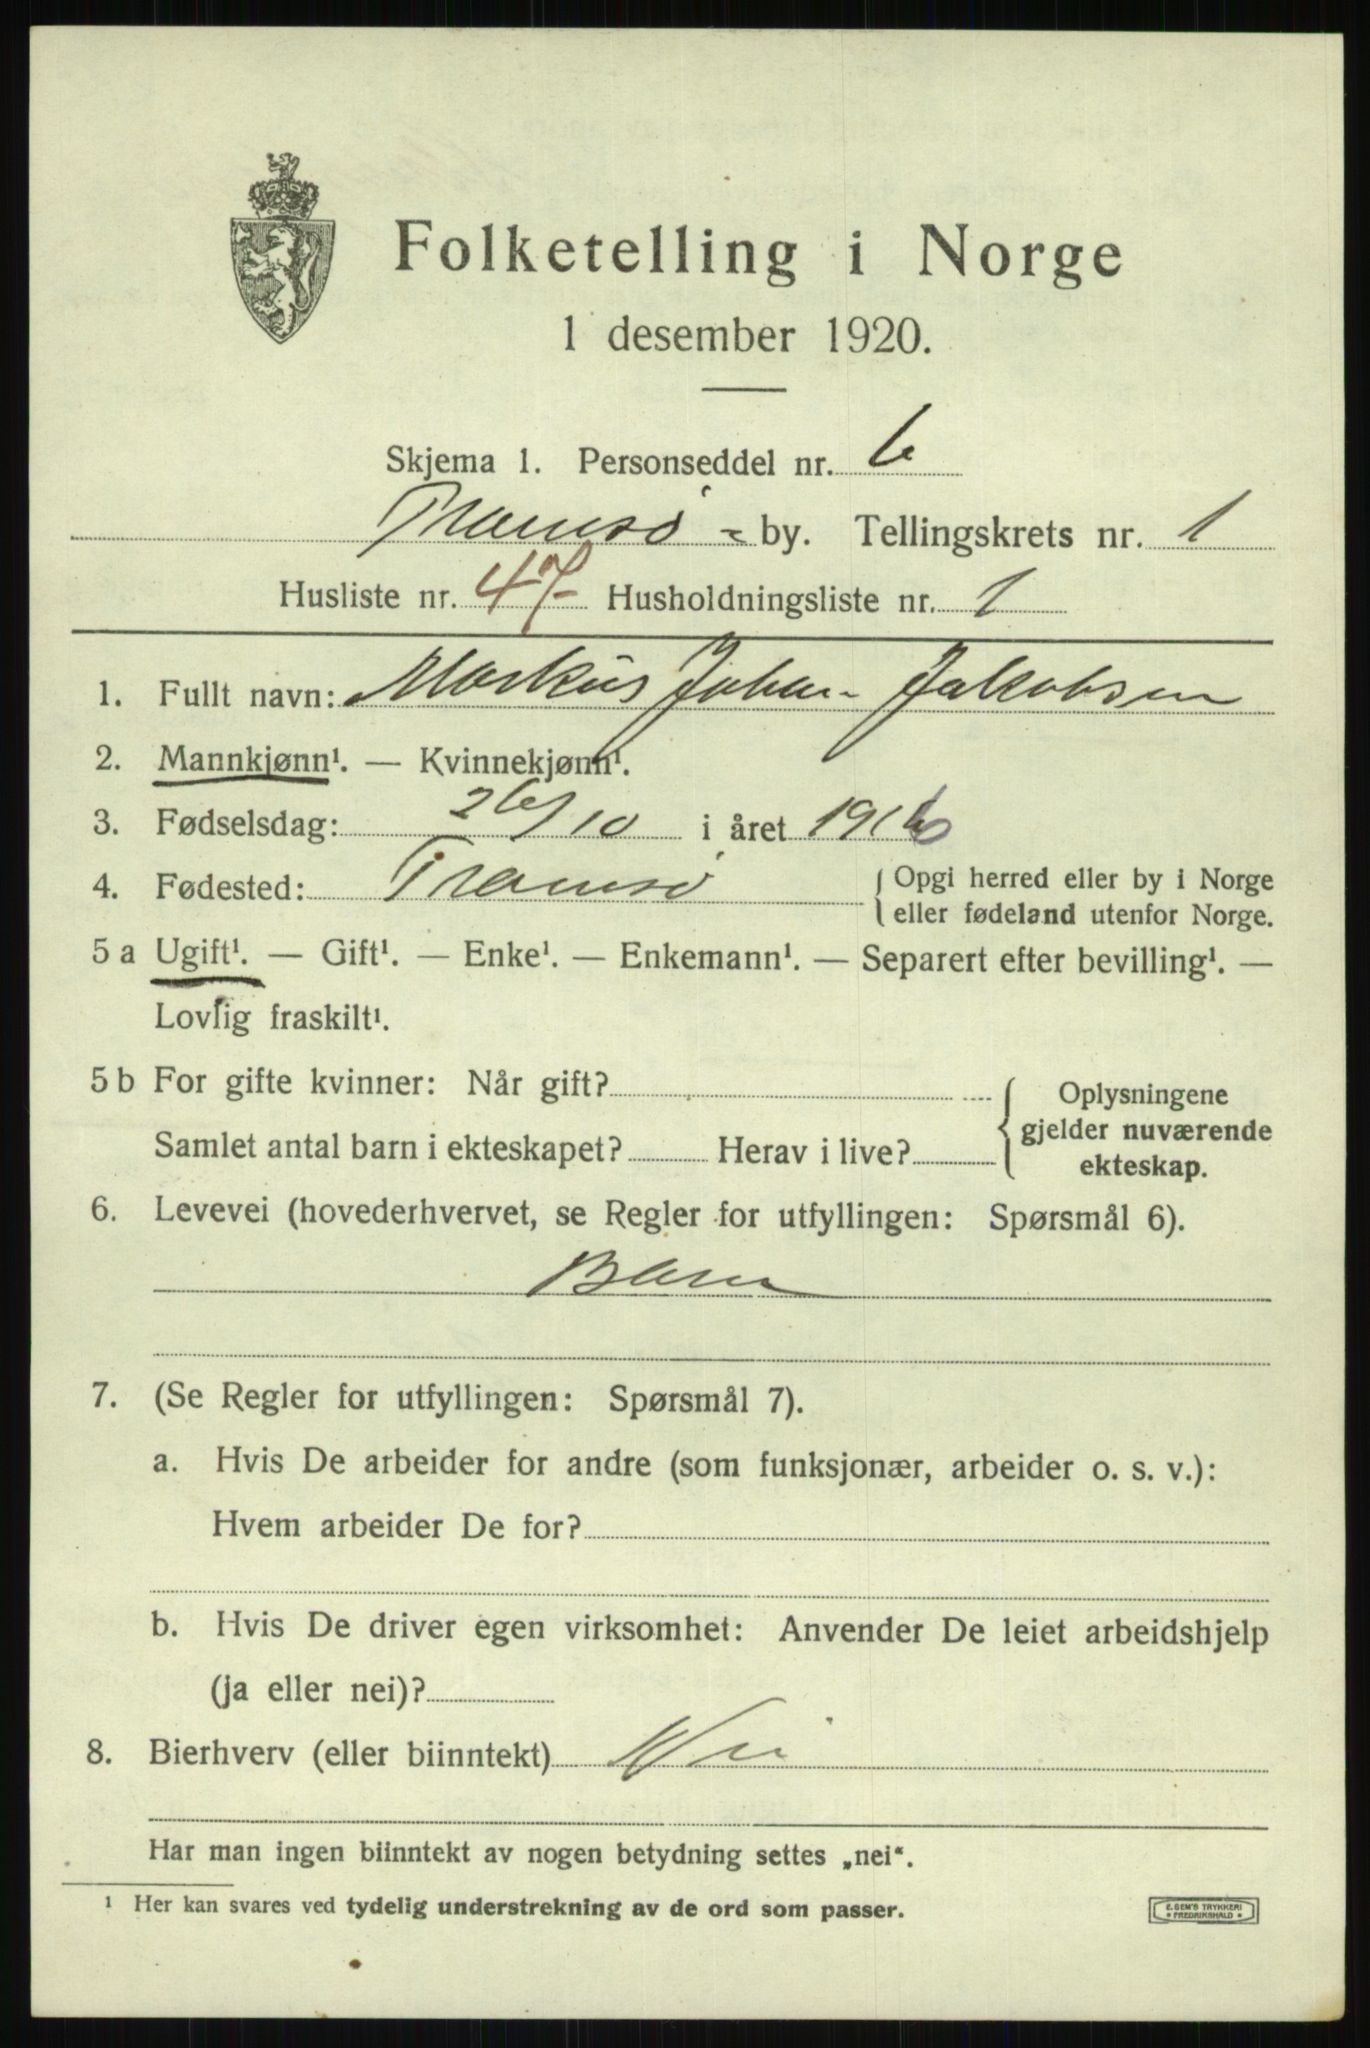 Folketelling i Norge
1 desember 1920.
Skjema 1. Personseddel nr. 6
Tromsø - by. Tellingskrets nr. 1
Husliste nr. 47 Husholdningsliste nr. 1
1. Fullt navn: Markus Johan Jakobsen
2. Mannkjønn¹. — Kvinnekjønn¹.
3. Fødselsdag: 26/10 i året 1916
4. Fødested: Tromsø { Opgi herred eller by i Norge
eller fødeland utenfor Norge.
5 a Ugift¹. — Gift¹. — Enke¹. — Enkemann¹. — Separert efter bevilling¹. —
Lovlig fraskilt¹.
5 b For gifte kvinner: Når gift? { Oplysningene
gjelder nuværende
Samlet antal barn i ekteskapet? Herav i live?
ekteskap.
6. Levevei (hovederhvervet, se Regler for utfyllingen: Spørsmål 6).
Barn
7. (Se Regler for utfyllingen: Spørsmål 7).
a. Hvis De arbeider for andre (som funksjonær, arbeider o. s. v.):
Hvem arbeider De for?
b. Hvis De driver egen virksomhet: Anvender De leiet arbeidshjelp
(ja eller nei)?
8. Bierhverv (eller biinntekt) Nei
Har man ingen biinntekt av nogen betydning settes „nei“.
¹ Her kan svares ved tydelig understrekning av de ord som passer.
E. SEM'S TRYKKERI
* FREDRIKSHALD *